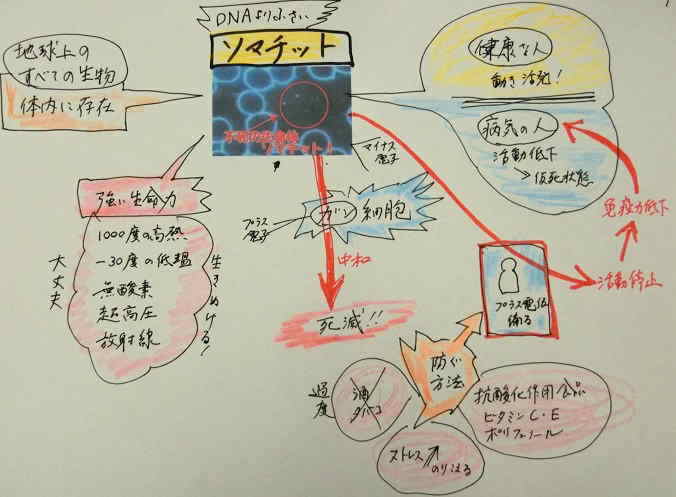 DNAよりふるい
ソマチット
地球上の
すべての生物
体内に存在
ソマチット!
マイナス
電子
健康な人
動き活発!
病気の人
活動低下
仮死状態
免疫力低下
活動停止
強い生命力
1000度の高熱
-30度の低温
無酸素
超高圧
放射線
大丈夫
生きぬける!
プラス
電子
ガン細胞
中和
死滅!!
プラス電位
防ぐ
方法
過度
酒
タバコ
ストレス
のりこえる
抗酸化作用食品
ビタミンC・E
ポリフェノール